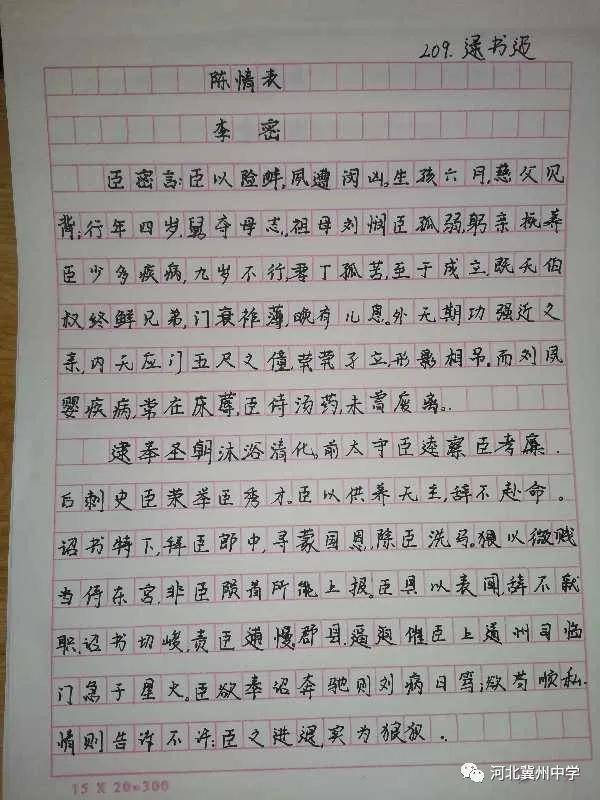 209. 逯书迈
陈情表
李密
臣密言:臣以险衅,夙遭闵凶。生孩六月,慈父见
背;行年四岁,舅夺母志,祖母刘悯臣孤弱,躬亲抚养
臣少多疾病,九岁不行,零丁孤苦,至于成立,既无伯
叔终鲜兄弟,门衰祚薄,晚有儿息。外无期功强近之
亲,内无应门五尺之僮,茕茕孑立,形影相吊。而刘夙
婴疾病,常在床蓐,臣侍汤药,未曾废离。
逮奉圣朝沐浴清化。前太守臣逵察臣孝廉.
后刺史臣荣举臣秀才。臣以供养无主,辞不赴命。
诏书特下,拜臣郎中,寻蒙国恩,除臣洗马。猥以微贱
当侍东宫,非臣陨首所能上报。臣具以表闻,辞不就
职,诏书切峻,责臣逋慢,郡县逼迫催臣上道州司临
门急于星火。臣欲奉诏奔驰则刘病日笃;欲苟顺私.
情则告诉不许:臣之进退,实为狼狈.
15 X 20=300
河北冀州中学